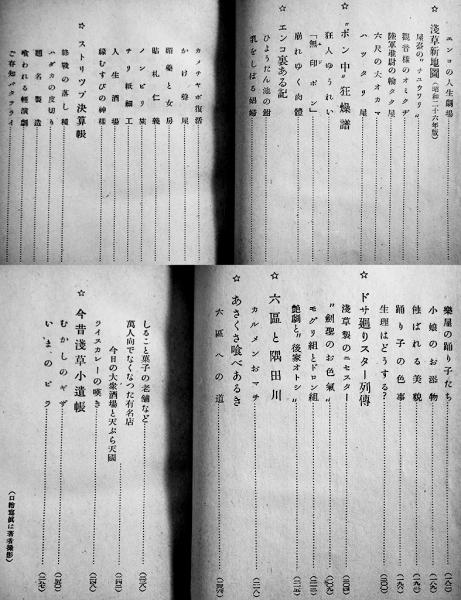 エンコの人生劇場
☆ 淺草新地圖（昭和二十六年版）
觀音様のオミクヂ
陸軍並尉の輪タク屋
六尺の大オカマ
ハッタリ屋
☆ “ポン中”狂燥譜
狂人ゆうれい
「無印ポン」
崩れゆく肉體
☆ エンコ裏ある記
ひょうたん池の鮒
乳をしばる娼婦
カメチヤボ復活
かけ聲屋
媚藥と女房
貼札仁義
ノンビリ族
チリ紙細工
人生酒場
緣むすびの神様
☆ ストリップ決算帳
終戰の落し種
ハダカの皮切り
題名製造
喰われる輕演劇
ご存知バタフライ
樂屋の踊り子たち
小娘のお添物
蝕ばれる美貌
踊り子の色事
生理はどうする？
☆ ドサ廻りスター列傳
淺草製のニセスター
“劍聖のお色氣”
モグリ組とドロン組
艶劇と“後家オトシ”
☆ 六區と隅田川
カルメンおマチ
☆ あさくさ喰べあるき
六區への道
しること菓子の老舗など
萬人向でなくなった有名店
今日の大衆酒場と天ぷら天國
ライスカレーの嘆き
☆ 今昔淺草小遣帳
むかしのギザ
いまのピラ
（口繪寫眞は著者撮影）